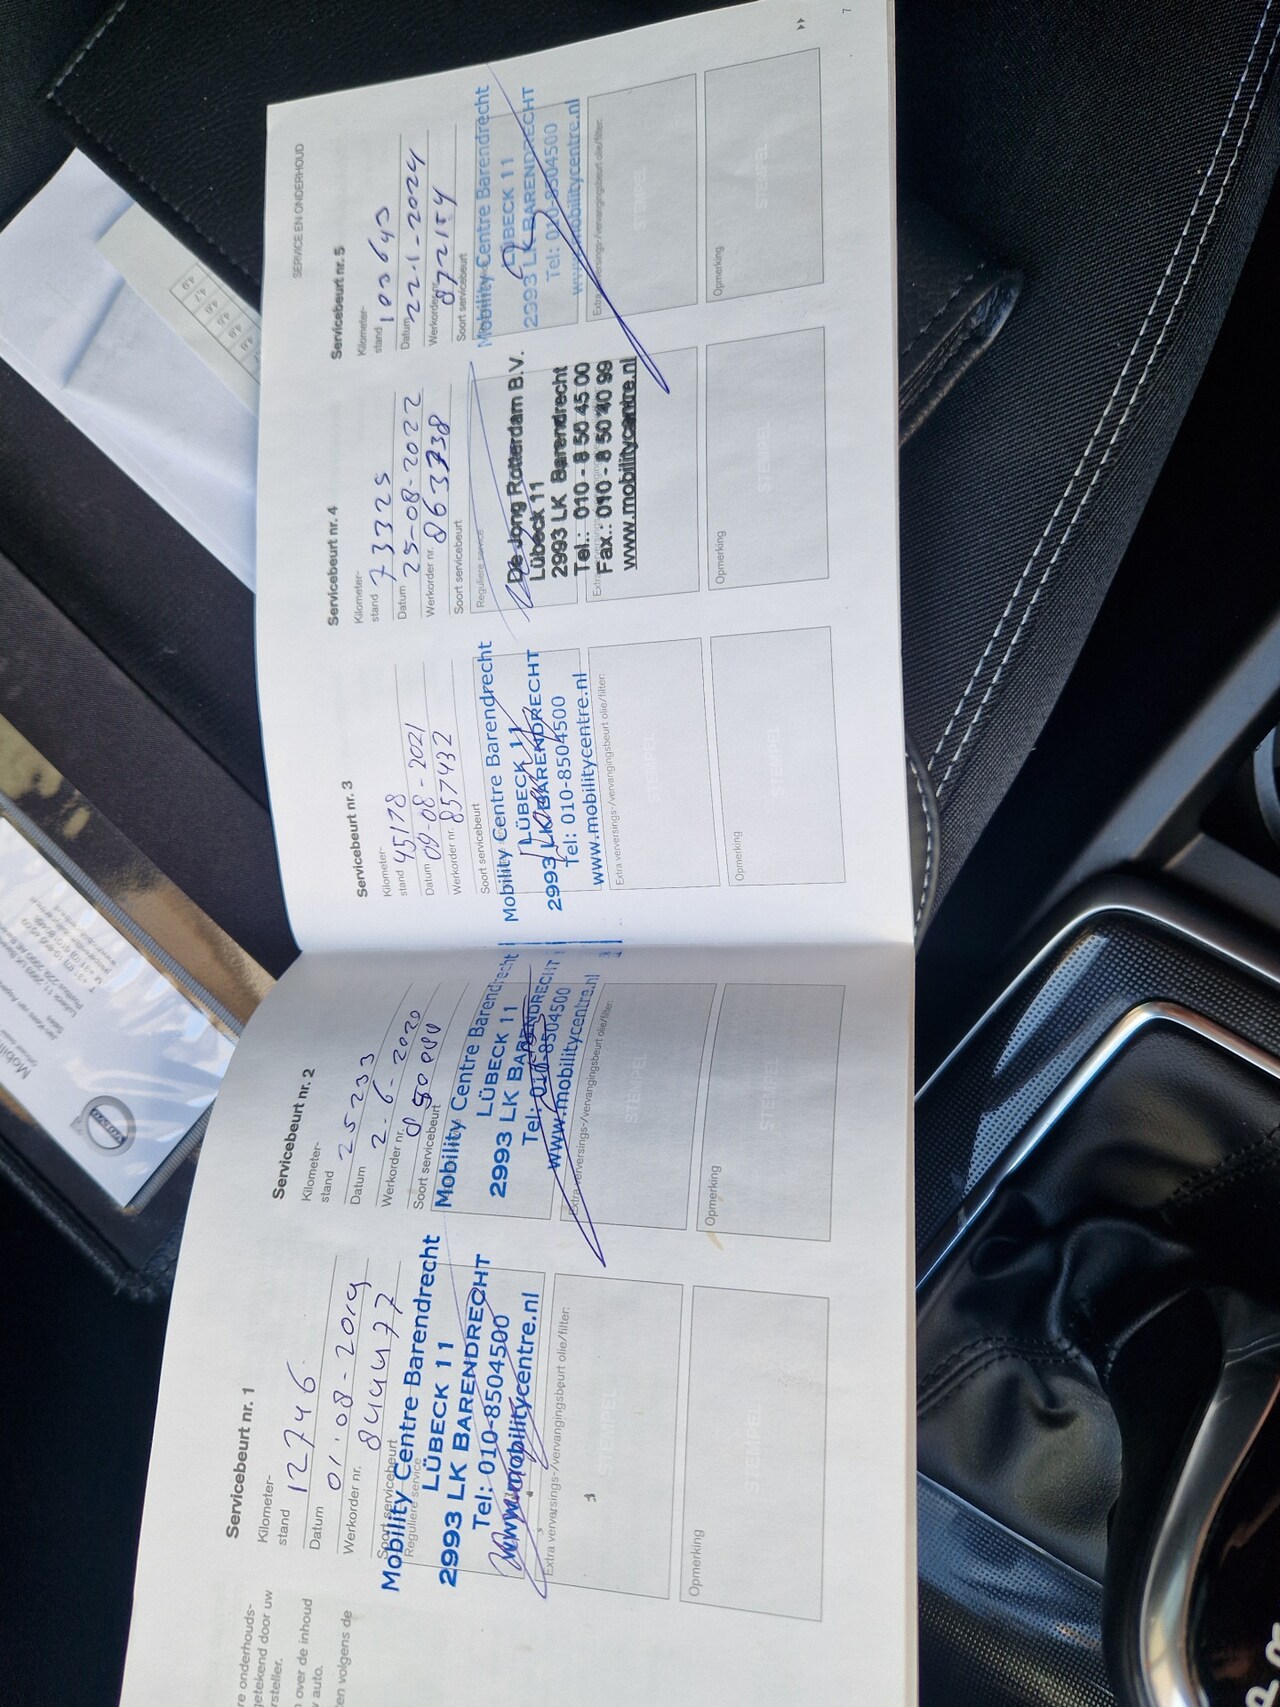 re onderhouds-
getekend door uw
rsteller.
over de inhoud
auto.
ten volgens de
Servicebeurt nr. 1
Kilometer-
stand 12746
Datum 01-08-2019
Werkorder nr. 844477
Soort servicebeurt
Reguliere service
Mobility Centre Barendrecht
LÜBECK 11
2993 LK BARENDRECHT
Tel: 010-8504500
www.mobilitycentre.nl
Extra verversings-/vervangingsbeurt olie/filter:
STEMPEL
Opmerking
STEMPEL
Servicebeurt nr. 2
Kilometer-
stand 25233
Datum 2-6-2020
Werkorder nr. 850080
Soort servicebeurt
Mobility Centre Barendrecht
LÜBECK 11
2993 LK BARENDRECHT
Tel: 010-8504500
www.mobilitycentre.nl
Extra verversings-/vervangingsbeurt olie/filter:
STEMPEL
Opmerking
STEMPEL
Servicebeurt nr. 3
Kilometer-
stand 45178
Datum 09-08-2021
Werkorder nr. 857432
Soort servicebeurt
Mobility Centre Barendrecht
LÜBECK 11
2993 LK BARENDRECHT
Tel: 010-8504500
www.mobilitycentre.nl
Extra verversings-/vervangingsbeurt olie/filter:
STEMPEL
Opmerking
STEMPEL
Servicebeurt nr. 4
Kilometer-
stand 73325
Datum 25-08-2022
Werkorder nr. 863738
Soort servicebeurt
Reguliere service
De Jong Rotterdam B.V.
Lübeck 11
2993 LK Barendrecht
Tel.: 010 - 8 50 45 00
Fax.: 010 - 8 50 40 99
www.mobilitycentre.nl
Opmerking
STEMPEL
SERVICE EN ONDERHOUD
Servicebeurt nr. 5
Kilometer-
stand 103643
Datum 22-1-2024
Werkorder nr. 872154
Soort servicebeurt
Mobility Centre Barendrecht
LÜBECK 11
2993 LK BARENDRECHT
Tel: 010-8504500
www.mobilitycentre.nl
Extra verversings-/vervangingsbeurt olie/filter:
STEMPEL
Opmerking
STEMPEL
7
VOLVO